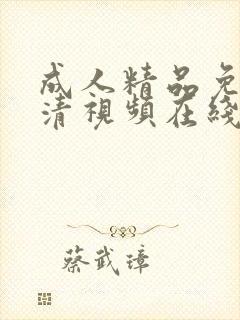 成人精品免
清視頻在綫
蔡武璋